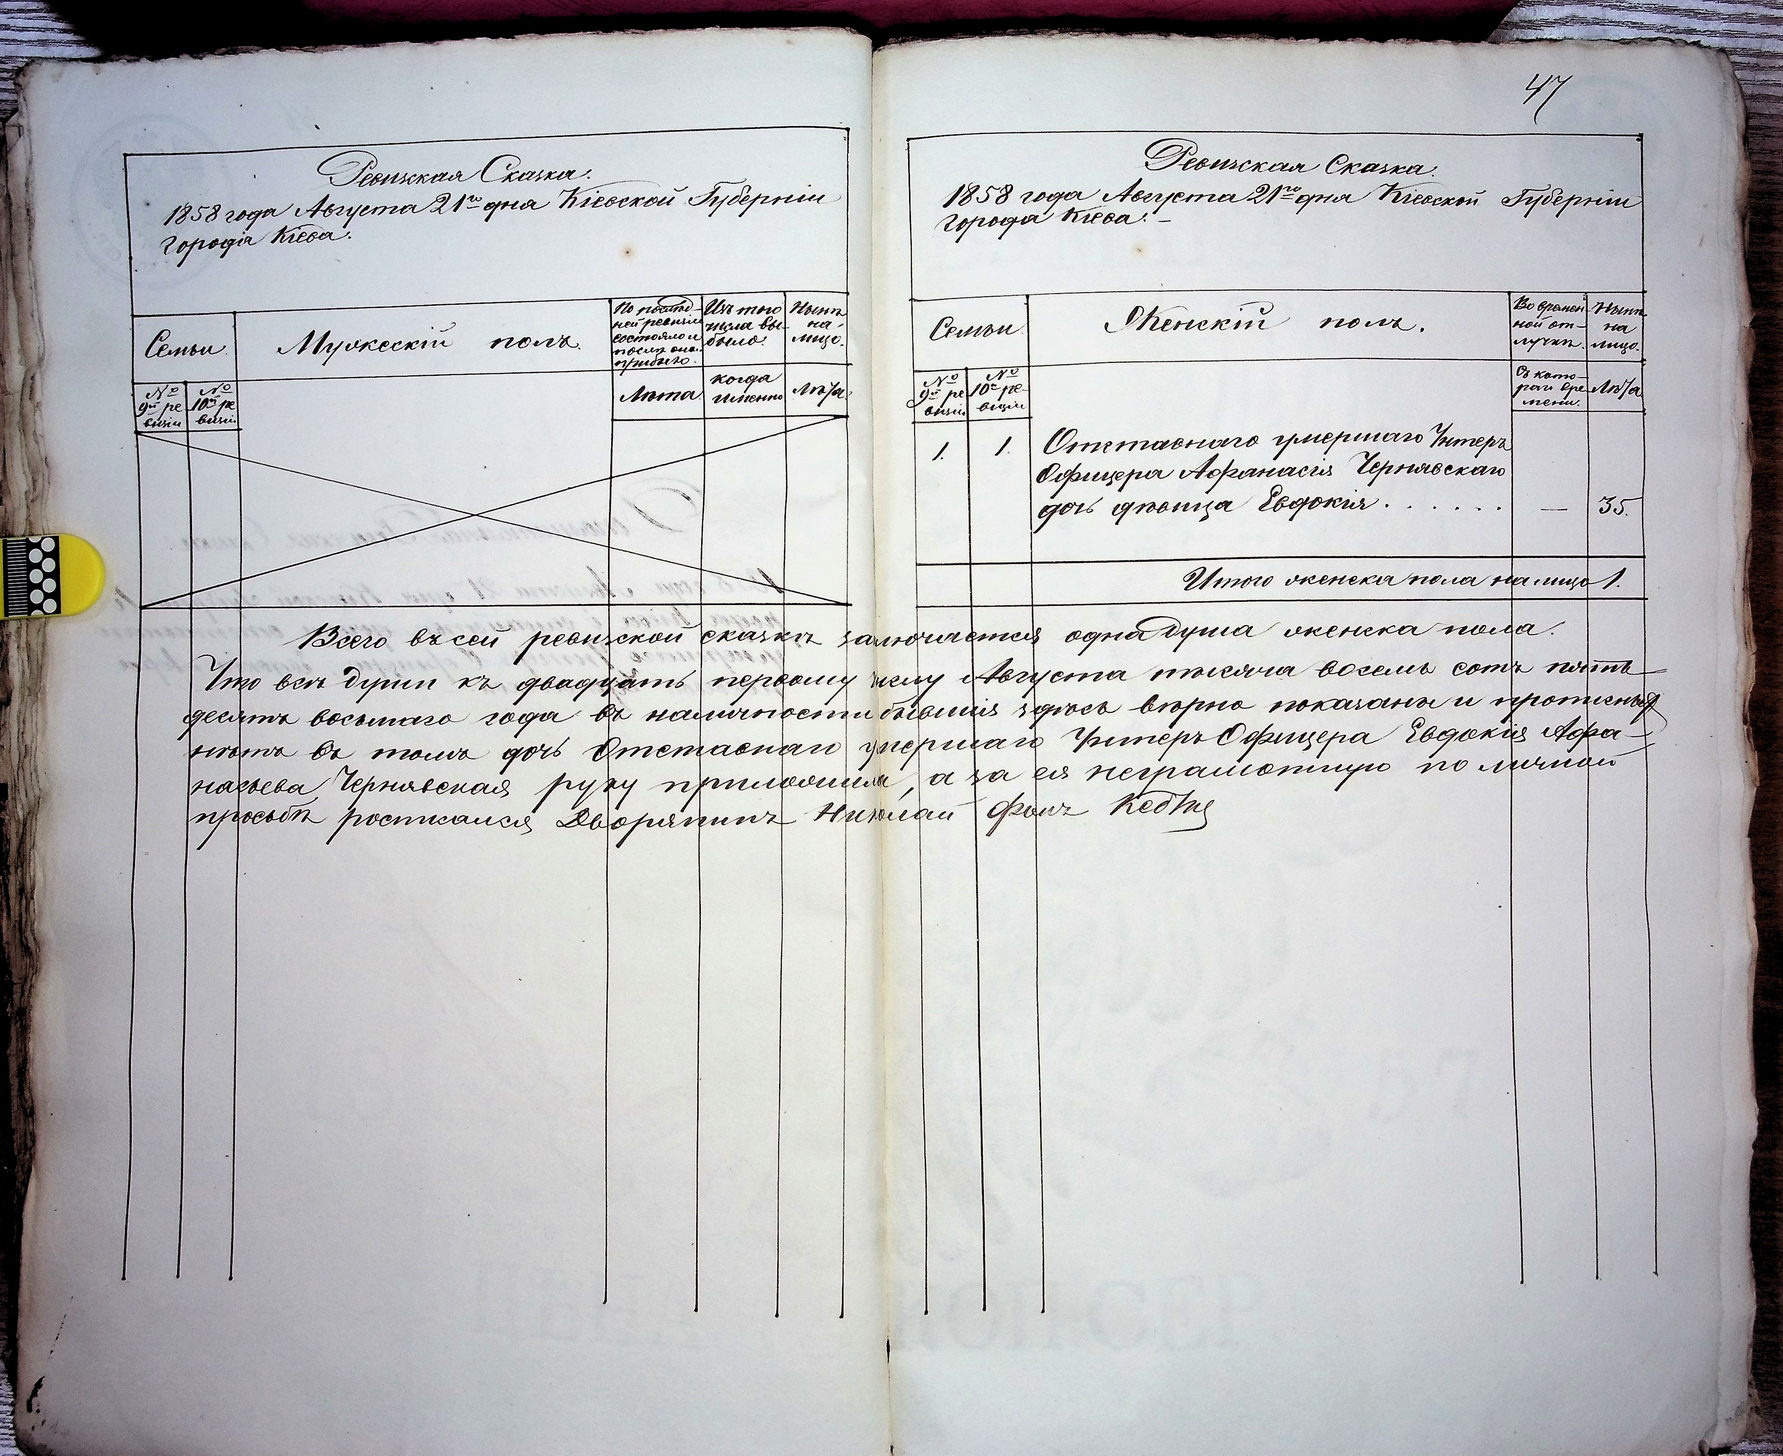 47
Ревизская Сказка.
1858 года Августа 21го дня Кіевской Губерніи
города Кіева.
Семьи
Мужескій полъ.
По послѣд-
ней ревизіи
состояло и
послѣ оной
прибыло.
Изъ того
числа вы-
было.
Нынѣ
на-
лицо.
№
9й ре
визіи
№
10й ре
визіи
Лѣта
когда
именно
Лѣта
Ревизская Сказка.
1858 года Августа 21го дня Кіевской Губерніи
города Кіева. –
Семьи
Женскій полъ.
Во времен-
ной от-
лучкѣ.
Нынѣ
на
лицо.
№
9й ре
визіи
№
10й ре-
визіи
Съ кото-
раго вре
мени.
Лѣта
1. 1. Отставнаго умершаго Унтеръ
Офицера Афанасія Чернявскаго
дочь дѣвица Евдокія . . . . . . — 35.
Итого женска пола налицо 1.
Всего въ сей ревизской сказкѣ заключается одна душа женска пола.
Что всѣ души къ двадцать первому числу Августа тысяча восемь сотъ пять-
десятъ восьмаго года въ наличности бывшія здѣсь вѣрно показаны и прописныхъ
нѣтъ въ томъ дочь Отставнаго умершаго Унтеръ Офицера Евдокія Афа-
насьева Чернявская руку приложила, а за ея неграмотную по личной
просьбѣ росписался Дворянинъ Николай Фонъ